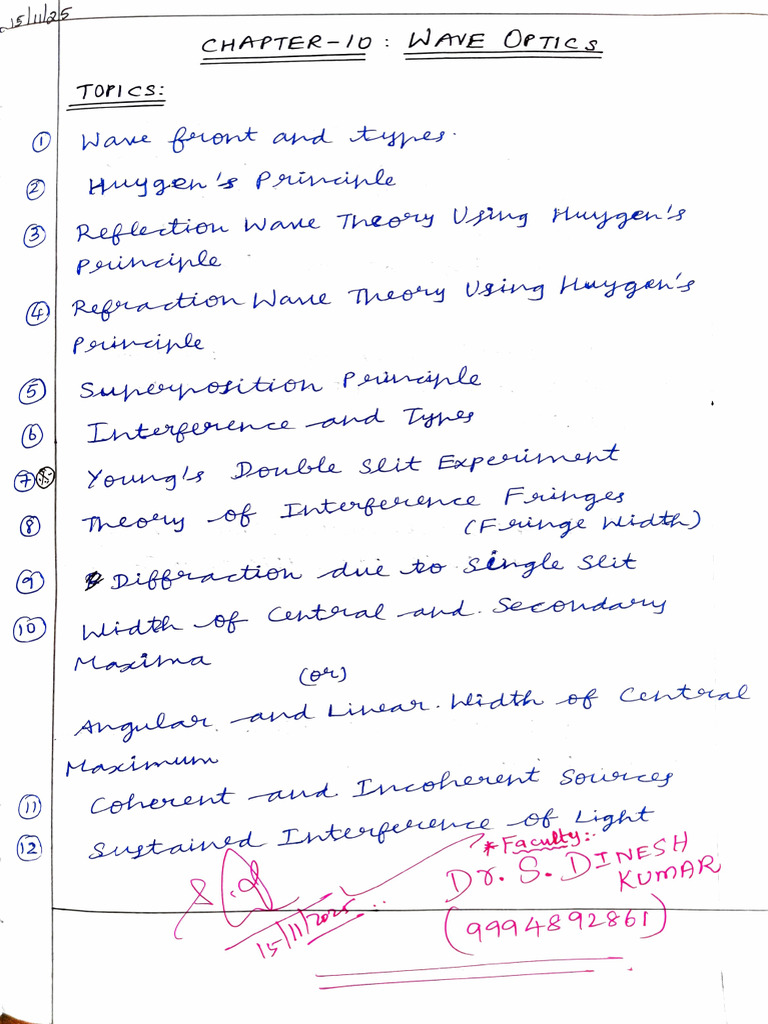 15/11/25
CHAPTER-10: WAVE OPTICS
TOPICS:
① Wave front and types.
② Huygen's Principle
③ Reflection Wave Theory Using Huygen's
Principle
④ Refraction Wave Theory Using Huygen's
Principle
⑤ Superposition Principle
⑥ Interference and Types
⑦ Young's Double Slit Experiment
⑧ Theory of Interference Fringes
(Fringe Width)
⑨ Diffraction due to Single Slit
⑩ Width of Central and Secondary
Maxima
(or)
Angular and Linear Width of Central
Maximum
⑪ Coherent and Incoherent Sources
⑫ Sustained Interference of Light
* Faculty:-
Dr. S. DINESH
KUMAR
(9994892861)
15/11/2025